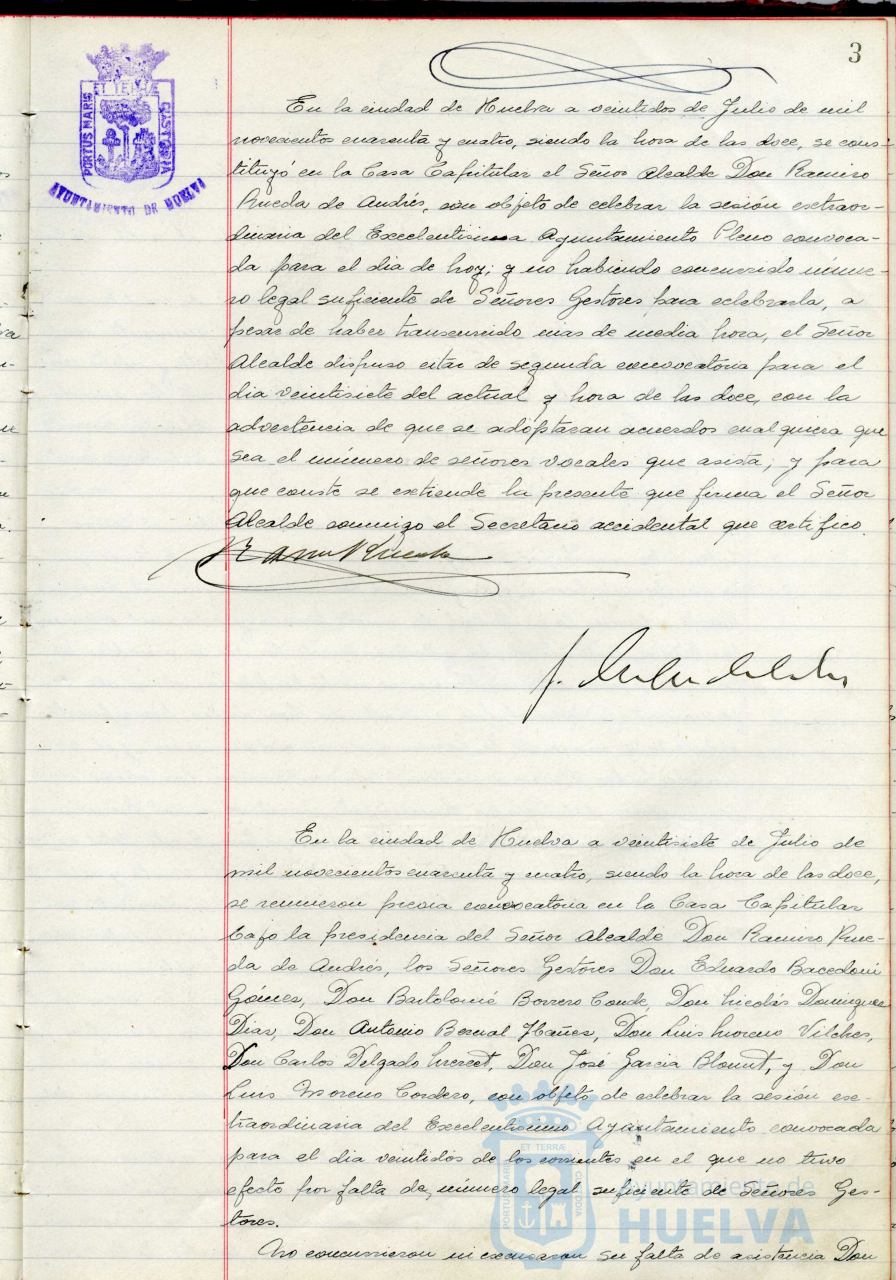 3
PORTUS MARIS ET TERRÆ CUSTODIA
AYUNTAMIENTO DE HUELVA
En la ciudad de Huelva a veintidos de Julio de mil
novecientos cuarenta y cuatro, siendo la hora de las doce, se cons-
tituyó en la Casa Capitular el Señor Alcalde Don Ramiro
Rueda de Andrés, con objeto de celebrar la sesión extraor-
dinaria del Excelentisima Ayuntamiento Pleno convoca-
da para el dia de hoy; y no habiendo concurrido núme-
ro legal suficiente de Señores Gestores para celebrarla, a
pesar de haber transcurrido mas de media hora, el Señor
Alcalde dispuso citar de segunda convocatoria para el
dia veintisiete del actual y hora de las doce, con la
advertencia de que se adoptaran acuerdos cualquiera que
sea el número de señores vocales que asista; y para
que conste se extiende la presente que firma el Señor
Alcalde conmigo el Secretario accidental que certifico.
Ramiro Rueda
En la ciudad de Huelva a veintisiete de Julio de
mil novecientos cuarenta y cuatro, siendo la hora de las doce,
se reunieron previa convocatoria en la Casa Capitular
bajo la presidencia del Señor Alcalde Don Ramiro Rue-
da de Andrés, los Señores Gestores Don Eduardo Bacedoni
Gómez, Don Bartolomé Borrero Conde, Don Nicolás Dominguez
Dias, Don Antonio Bernal Ibañez, Don Luis Moreno Vilches,
Don Carlos Delgado Don José Garcia y Don
Luis Moreno Cordero, con objeto de celebrar la sesión ex-
traordinaria del Excelentisimo Ayuntamiento convocada
para el dia veintidos de los corrientes en el que no tuvo
efecto por falta de número legal suficiente de Señores Ges-
tores.
No concurrieron ni excusaron su falta de asistencia Don
PORTUS MARIS ET TERRÆ CUSTODIA
Ayuntamiento de
HUELVA